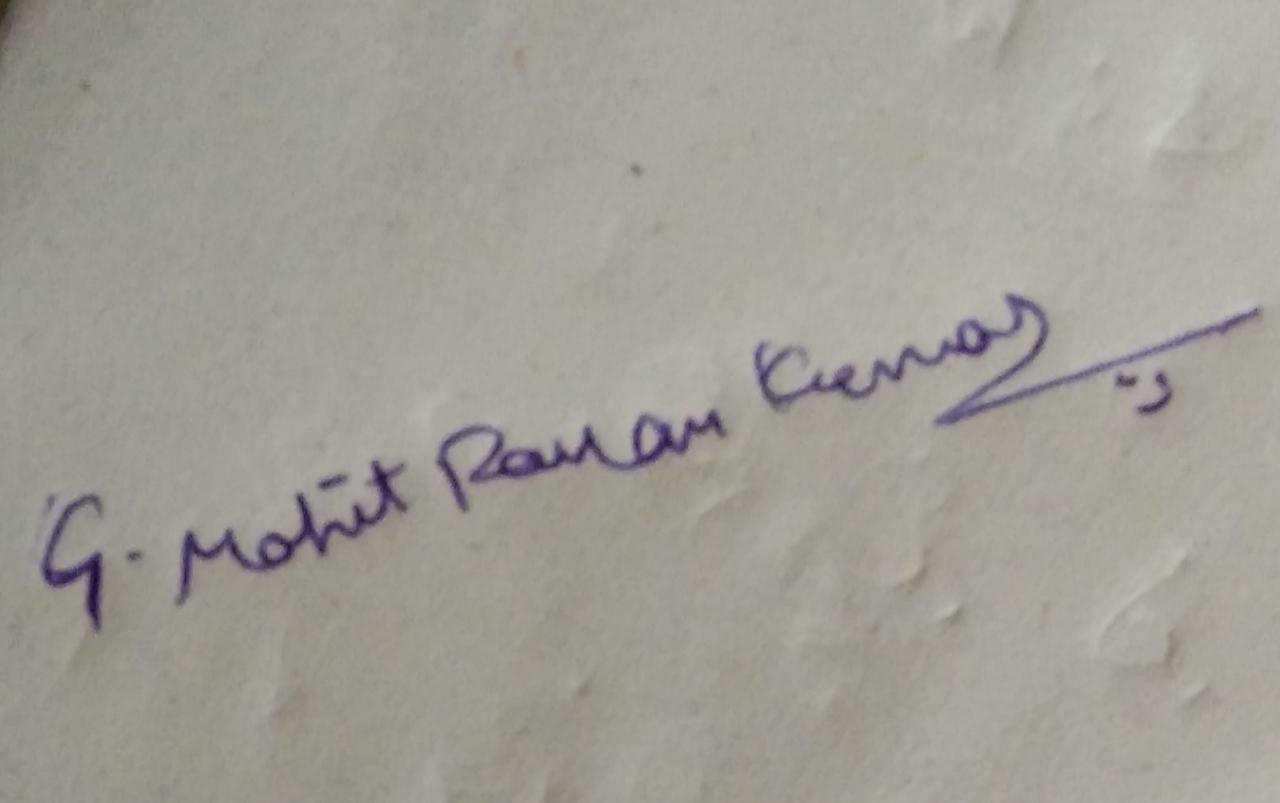 G. Mohit Raman Kumar